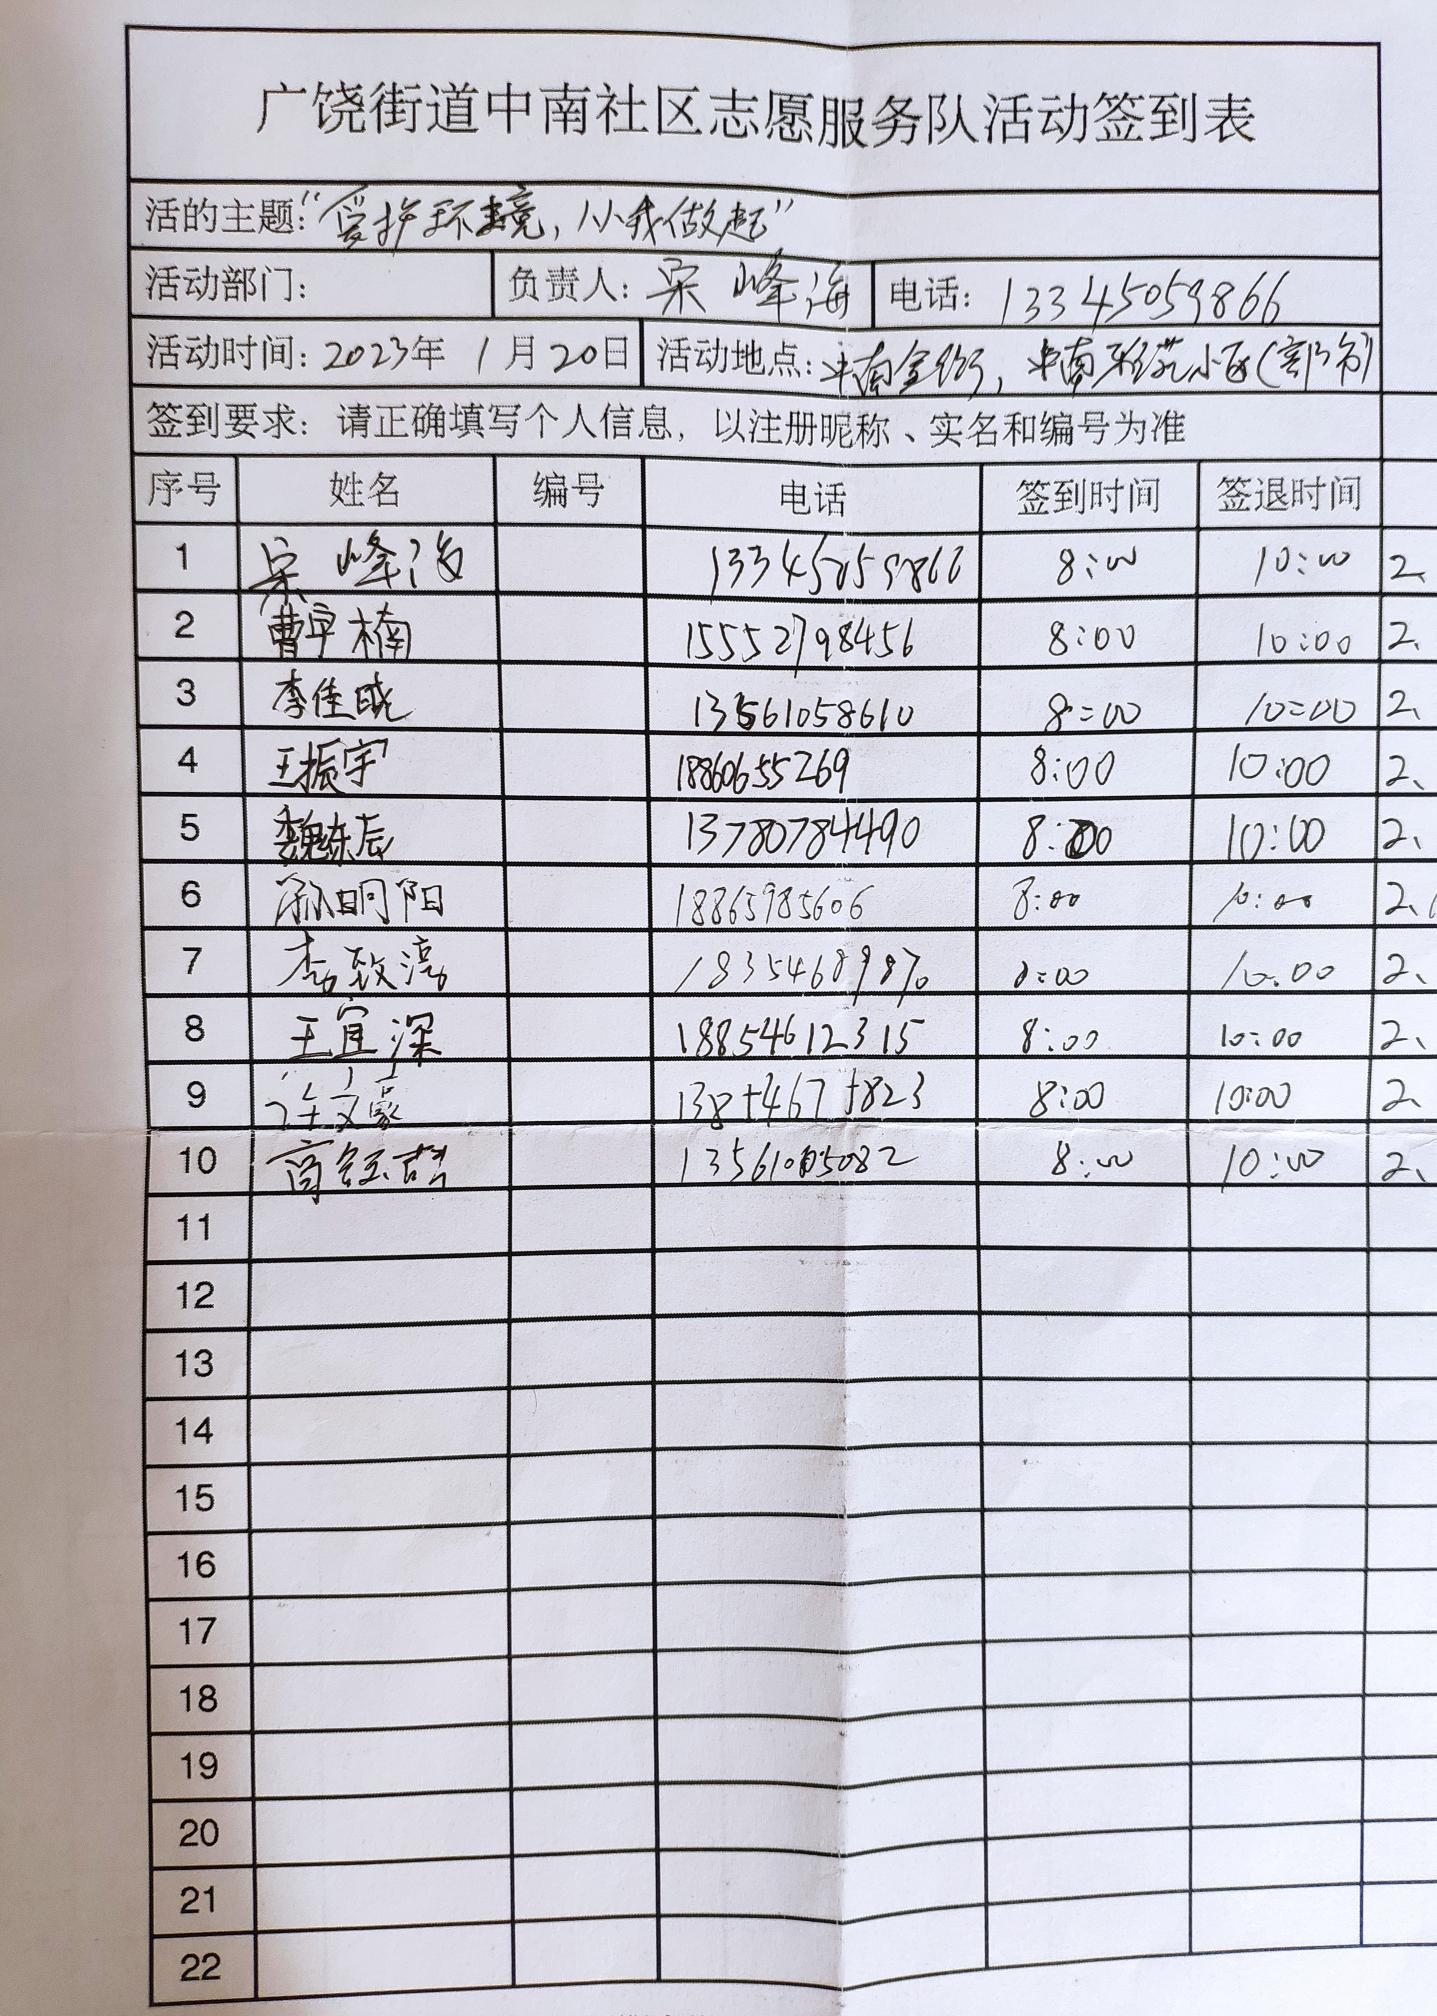 广饶街道中南社区志愿服务队活动签到表
活的主题:“爱护环境,从我做起”
活动部门: 负责人: 宋峰海 电话: 13345059866
活动时间: 2023年 1月20日 活动地点: 中南金街, 中南雅苑小区(部分)
签到要求: 请正确填写个人信息, 以注册昵称、实名和编号为准
序号 姓名 编号 电话 签到时间 签退时间
1 宋峰海 13345059866 8:00 10:00 2、
2 曹宇楠 15552798456 8:00 10:00 2、
3 李佳晓 13561058610 8:00 10:00 2、
4 王振宇 18860655269 8:00 10:00 2、
5 魏东辰 13780784490 8:00 10:00 2、
6 阳 18865985606 8:00 10:00 2、
7 李致 8:00 10:00 2、
8 王宜深 18854612315 8:00 10:00 2、
9 许文豪 8:00 10:00 2、
10 商钰喆 8:00 10:00 2、
11
12
13
14
15
16
17
18
19
20
21
22